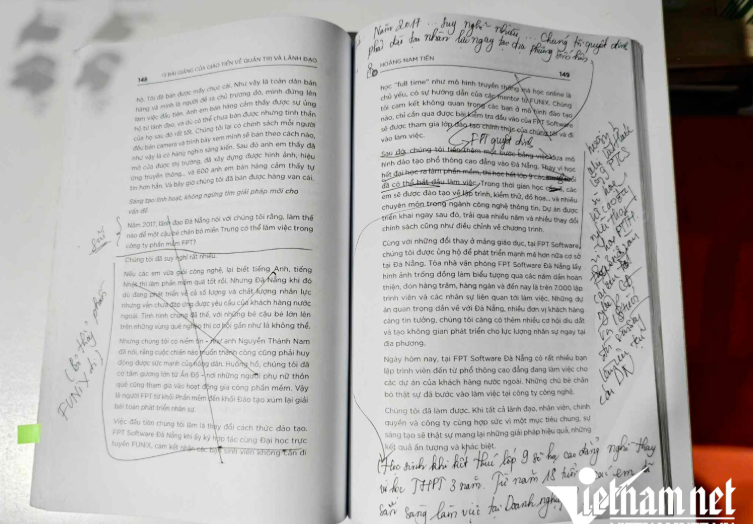 148
13 BÀI GIẢNG CỦA GIÁO TIẾN VỀ QUẢN TRỊ VÀ LÃNH ĐẠO
hộ. Tôi đã bán được mấy chục cái. Như vậy là toàn dân bán
hàng và mình là người đề ra chủ trương đó, mình đứng lên
làm việc đầu tiên. Anh em bán hàng cảm thấy được sự ủng
hộ từ lãnh đạo, và dù có thể chưa bán được nhưng tinh thần
của họ sau đó rất tốt. Chúng tôi lại có chính sách mỗi người
đầu bán camera và trình bày xem mình sẽ bán theo cách nào,
như vậy là có hàng nghìn sáng kiến. Sau đó anh em thấy đã
mở cửa được thị trường, đã xây dựng được hình ảnh, hiệu
ứng truyền thông... và 600 anh em bán hàng cảm thấy tự
tin hơn hẳn. Và bây giờ chúng tôi đã bán được hàng vạn cái.
Sáng tạo linh hoạt, không ngừng tìm giải pháp mới cho
vấn đề
Năm 2017, lãnh đạo Đà Nẵng nói với chúng tôi rằng, làm thế
nào để một cậu bé chân bò miền Trung có thể làm việc trong
công ty phần mềm FPT?
Chúng tôi đã suy nghĩ rất nhiều.
Nếu các em vừa giỏi công nghệ, lại biết tiếng Anh, tiếng
Nhật thì làm phần mềm quá tốt rồi. Nhưng Đà Nẵng khi đó
dù đang phát triển về cả số lượng và chất lượng nhân lực
nhưng vẫn chưa đáp ứng được yêu cầu của khách hàng nước
ngoài. Tình hình chung đã thế, với những bé cậu bé lớn lên
trên những vùng quê nghèo thì cơ hội gần như là không thể.
Nhưng chúng tôi có niềm tin – như anh Nguyễn Thành Nam
đã nói, rằng cuộc chiến nào muốn thành công cũng phải huy
động được sức mạnh của nông dân. Huống hồ, chúng tôi đã
có tấm gương lớn từ Ấn Độ - nơi những người phụ nữ thôn
quê cũng tham gia vào hoạt động gia công phần mềm. Vậy
là người FPT từ khối Phần mềm đến khối Đào tạo xúm lại giải
bài toán phát triển nhân sự.
Việc đầu tiên chúng tôi làm là thay đổi cách thức đào tạo.
FPT Software Đà Nẵng khi ấy ký hợp tác cùng Đại học trực
tuyến FUNiX, cam kết nhận các sinh viên không cần đi
(Bỏ thấy phần
FUNiX đi)
Năm 2017 ... suy nghĩ nhiều ... Chúng tôi quyết định
phải đào tạo nhân lực ngay tại địa phương
HOÀNG NAM TIẾN
149
học "full time" như mô hình truyền thống mà học online là
chủ yếu, có sự hướng dẫn của các mentor từ FUNiX. Chúng
tôi cam kết không quan trọng các bạn ở mô hình đào tạo
nào, chỉ cần qua được bài kiểm tra đầu vào của FPT Software
sẽ được tham gia lớp đào tạo chính thức của chúng tôi và đi
vào làm việc.
FPT quyết định
Sau đó, chúng tôi tiến thêm một bước bằng việc đưa mô
hình đào tạo phổ thông cao đẳng vào Đà Nẵng. Thay vì học
hết đại học ra làm phần mềm, thì học hết lớp 9 các em
đã có thể bắt đầu làm việc. Trong thời gian học các
em sẽ được đào tạo về lập trình, kiểm thử, đồ họa... và nhiều
chuyên môn trong ngành công nghệ thông tin. Dự án được
triển khai ngay sau đó, trải qua nhiều năm và nhiều thay đổi
chính sách cũng như điều chỉnh về chương trình.
Cùng với những đổi thay ở mảng giáo dục, tại FPT Software,
chúng tôi được ủng hộ để phát triển mạnh mẽ hơn nữa cơ sở
tại Đà Nẵng. Tòa nhà văn phòng FPT Software Đà Nẵng lấy
hình ảnh trống đồng làm biểu tượng qua các năm dần hoàn
thiện, đón hàng trăm, hàng ngàn và đến nay là trên 7.000 lập
trình viên và các nhân sự liên quan tới làm việc. Những dự
án quan trọng dần về với Đà Nẵng, nhiều đơn vị khách hàng
càng tin tưởng, chúng tôi càng có thêm nhiều cơ hội dìu dắt
và tạo không gian phát triển cho lực lượng nhân sự ngay tại
địa phương.
Ngày hôm nay, tại FPT Software Đà Nẵng có rất nhiều bạn
lập trình viên đến từ phổ thông cao đẳng đang làm việc cho
các dự án của khách hàng nước ngoài. Những chú bé chăn
bò thật sự đã bước vào làm việc tại công ty công nghệ.
Chúng tôi đã làm được. Khi tất cả lãnh đạo, nhân viên, chính
quyền và công ty cùng hợp sức vì một mục tiêu chung, sự
sáng tạo sẽ thật sự mang lại những giải pháp hiệu quả, những
kết quả ấn tượng và khác biệt.
(Học sinh khi kết thúc lớp 9 sẽ học cao đẳng nghề thay
vì học THPT 3 năm. Từ năm 18 tuổi các em
sẵn sàng làm việc tại Doanh nghiệp
Vietnamnet